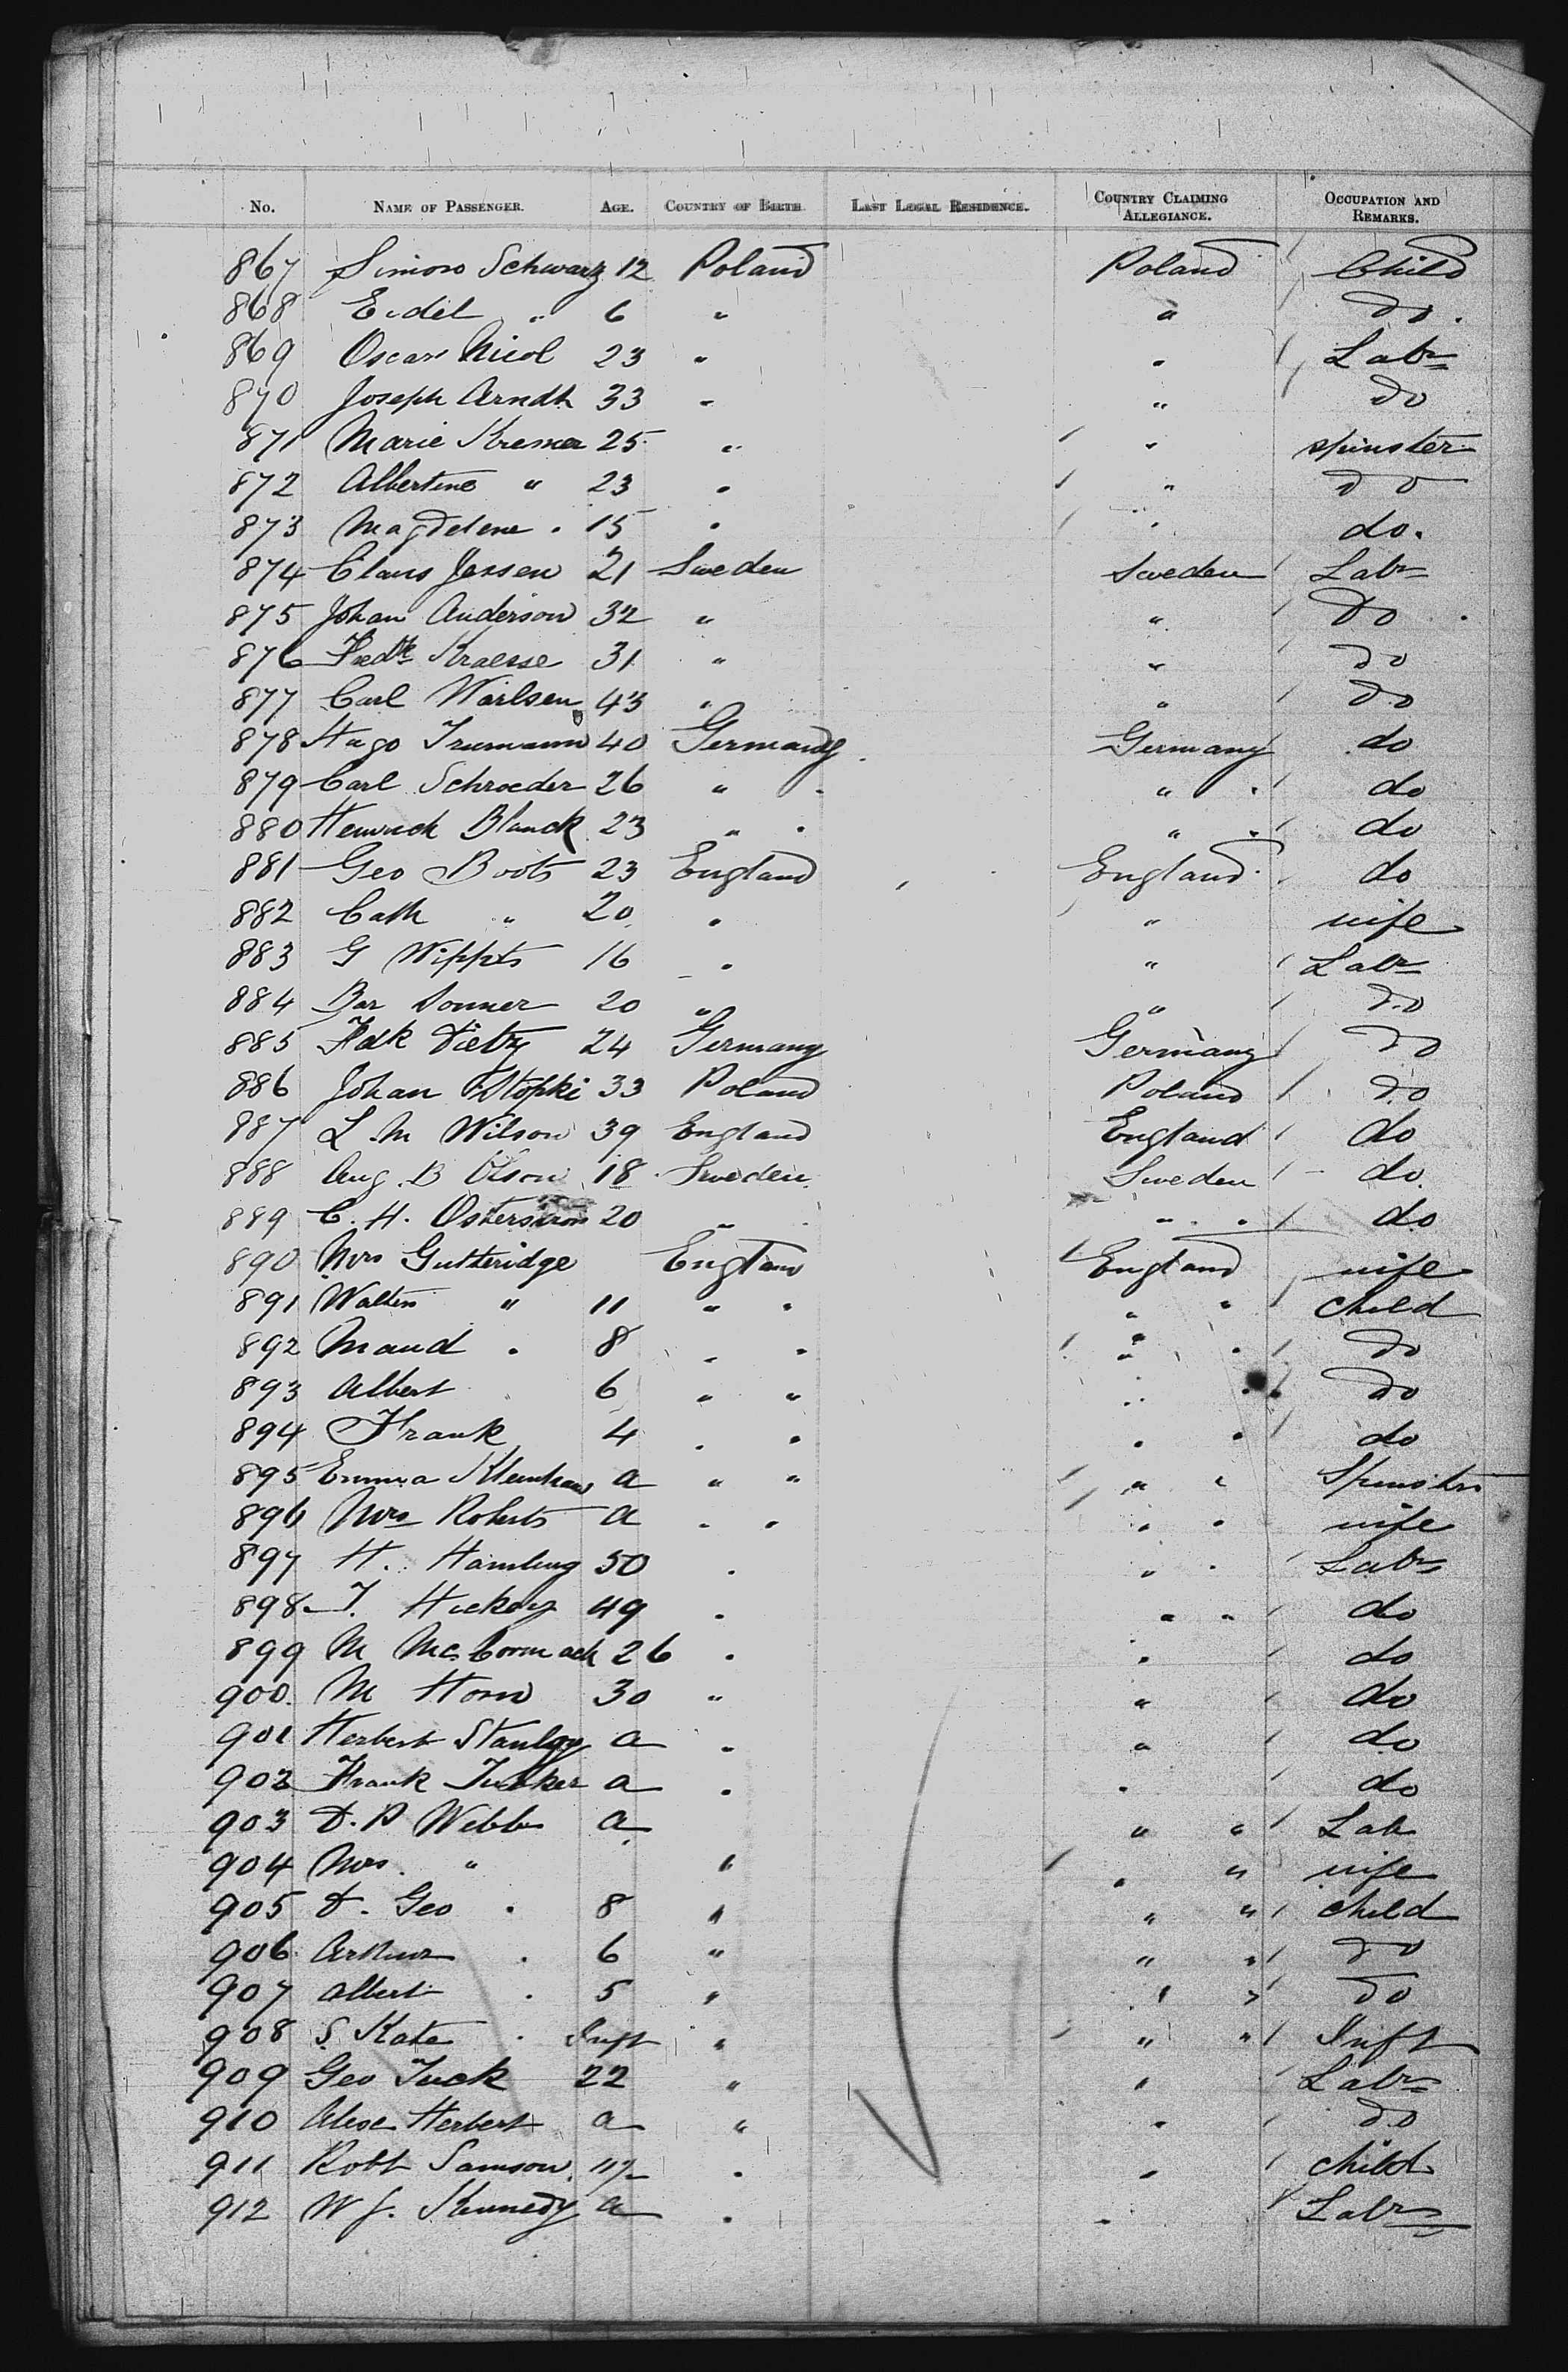 No. NAME OF PASSENGER. AGE. COUNTRY OF BIRTH LAST LEGAL RESIDENCE. COUNTRY CLAIMING ALLEGIANCE. OCCUPATION AND REMARKS.
867 Simon Schwartz 12 Poland Poland Child
868 Eidel " 6 " " Do.
869 Oscar Nicol 23 " " Labr
870 Joseph Arndt 33 " " Do
871 Marie Kremer 25 " " spinster
872 Albertine " 23 " " do
873 Magdelene " 15 " " do.
874 Claus Jessen 21 Sweden Sweden Labr
875 Johan Anderson 32 " " Do
876 Fredk Kraesse 31 " " Do
877 Carl 43 " " Do
878 Hugo Trumann 40 Germany Germany do
879 Carl Schroeder 26 " " do
880 Heinrich Blanck 23 " " do
881 Geo Boots 23 England England do
882 Cath " 20 " " wife
883 G Wippts 16 " " Labr
884 Bar 20 " " Do
885 Fdk Dietz 24 Germany Germany Do
886 Johan 33 Poland Poland Do
887 L. M Wilson 39 England England do
888 Aug. B Olson 18 Sweden Sweden do
889 C. H. Osterstrom 20 " " do
890 Mrs Gutteridge England England wife
891 Walter " 11 " " " " child
892 Maud " 8 " " " " Do
893 Albert " 6 " " " " Do
894 Frank 4 " " " " do
895 Emma a " " " " Spinster
896 Mrs Roberts a " " " " wife
897 H. Hambug 50 " " " Labr
898 T. Hickey 49 " " " do
899 M McCormack 26 " " do
900 M Horn 30 " " do
901 Herbert Stanley a " " do
902 Frank Tucker a " " do
903 D. P Webb a " " Lab
904 Mrs. " " " " wife
905 D. Geo " 8 " " " child
906 Arthur " 6 " " " Do
907 Albert " 5 " " " Do
908 S. Kate " Inft " " " Inft
909 Geo Tuck 22 " " Labr
910 Alex Herbert a " " Do
911 Robt Samson 11 " " child
912 W J. Kennedy a " " Labr